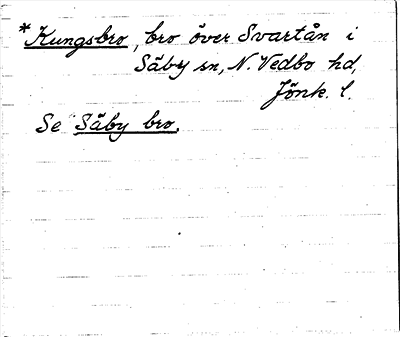 *Kungsbro, bro över Svartån i
Säby sn, N. Vedbo hd,
Jönk. l.
Se Säby bro.